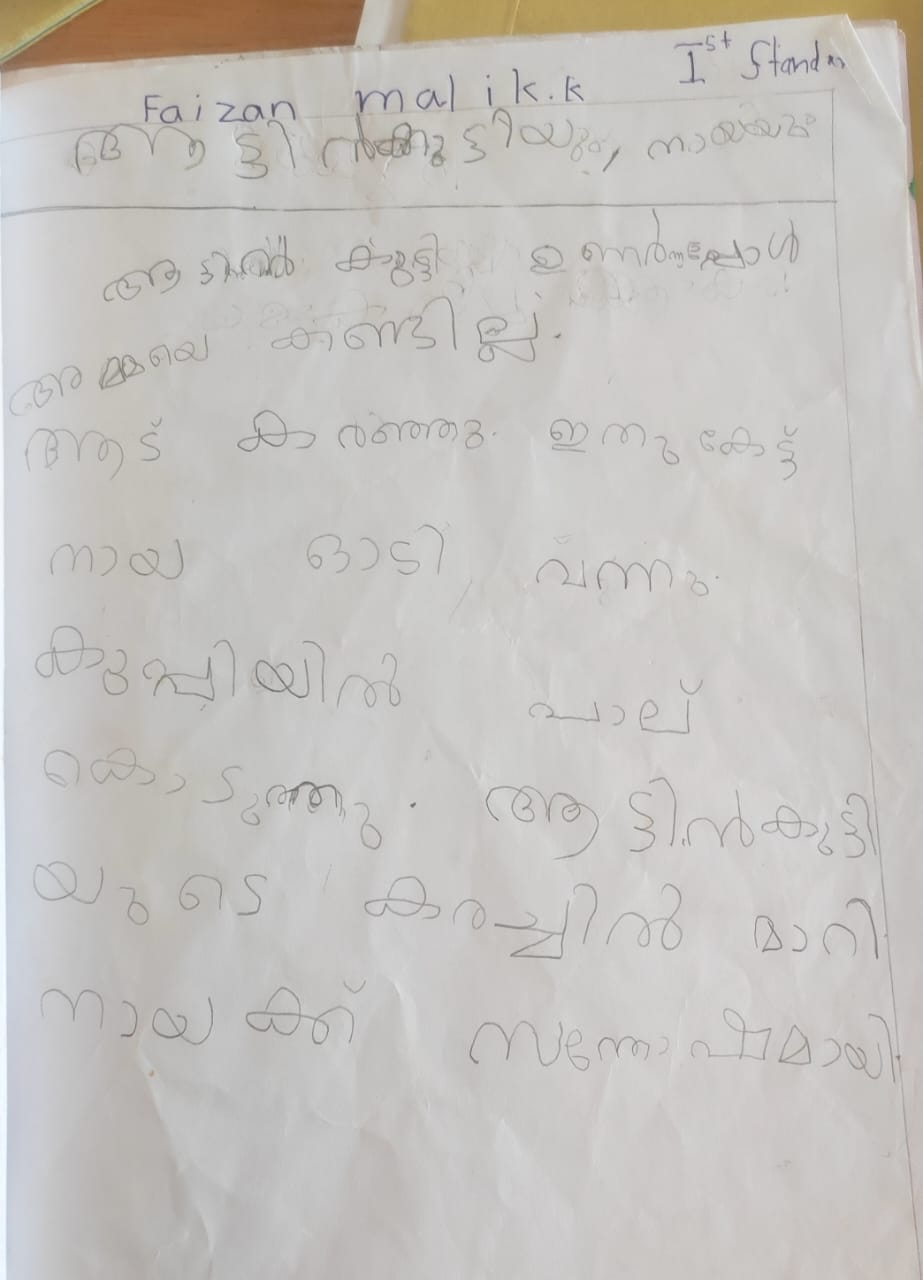 Faizan malik.k Ist Standar
ആട്ടിൻകുട്ടിയും, നായയും
ആട്ടിൻ കുട്ടി ഉണർന്നപ്പോൾ
അമ്മയെ കണ്ടില്ല.
ആട് കരഞ്ഞു. ഇതു കേട്ട്
നായ ഓടി വന്നു.
കുപ്പിയിൽ പാല്
കൊടുത്തു. ആട്ടിൻകുട്ടി
യുടെ കരച്ചിൽ മാറി
നായക്ക് സന്തോഷമായി